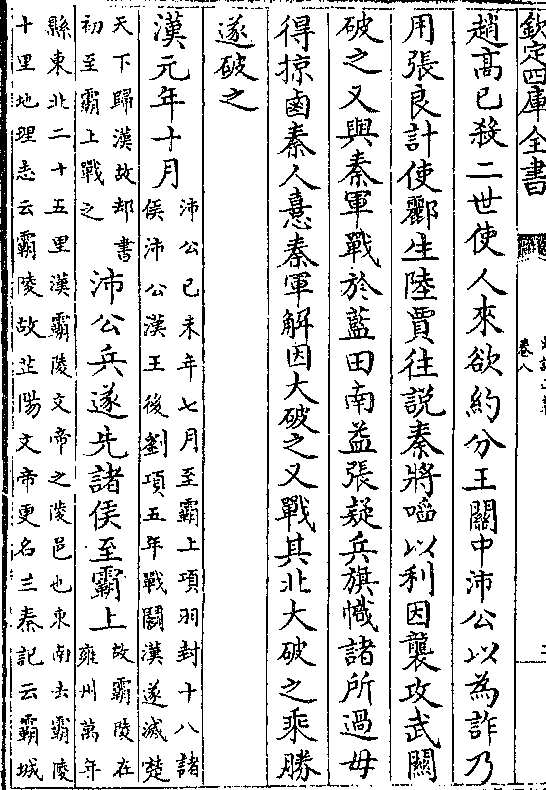 欽定四庫全書
卷八
趙髙已殺二世使人來欲約分王關中沛公以為詐乃
用張良計使酈生陸賈往説秦將啗以利因襲攻武關
破之又與秦軍戰於藍田南益張疑兵旗幟諸所過毋
得掠鹵秦人憙秦軍解因大破之又戰其北大破之乘勝
遂破之
漢元年十月
沛公已未年七月至霸上項羽封十八諸
侯沛公漢王後劉項五年戰鬭漢遂滅楚
天下歸漢故却書
初至霸上戰之
沛公兵遂先諸侯至霸上
故霸陵在
雍州萬年
縣東北二十五里漢霸陵文帝之陵邑也東南去霸陵
十里地理志云霸陵故芷陽文帝更名三秦記云霸城